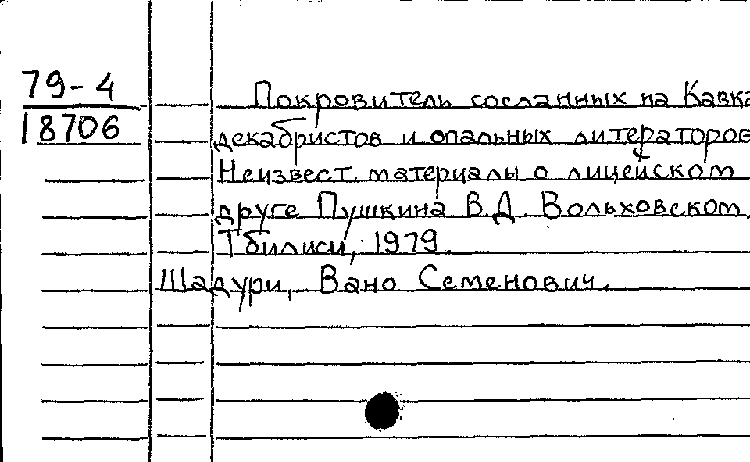 79-4
18706
Покровитель сосланных на Кавка
декабристов и опальных литераторов
Неизвест. материалы о лицейском
друге Пушкина В.Д. Вольховском.
Тбилиси, 1979.
Шадури, Вано Семенович.